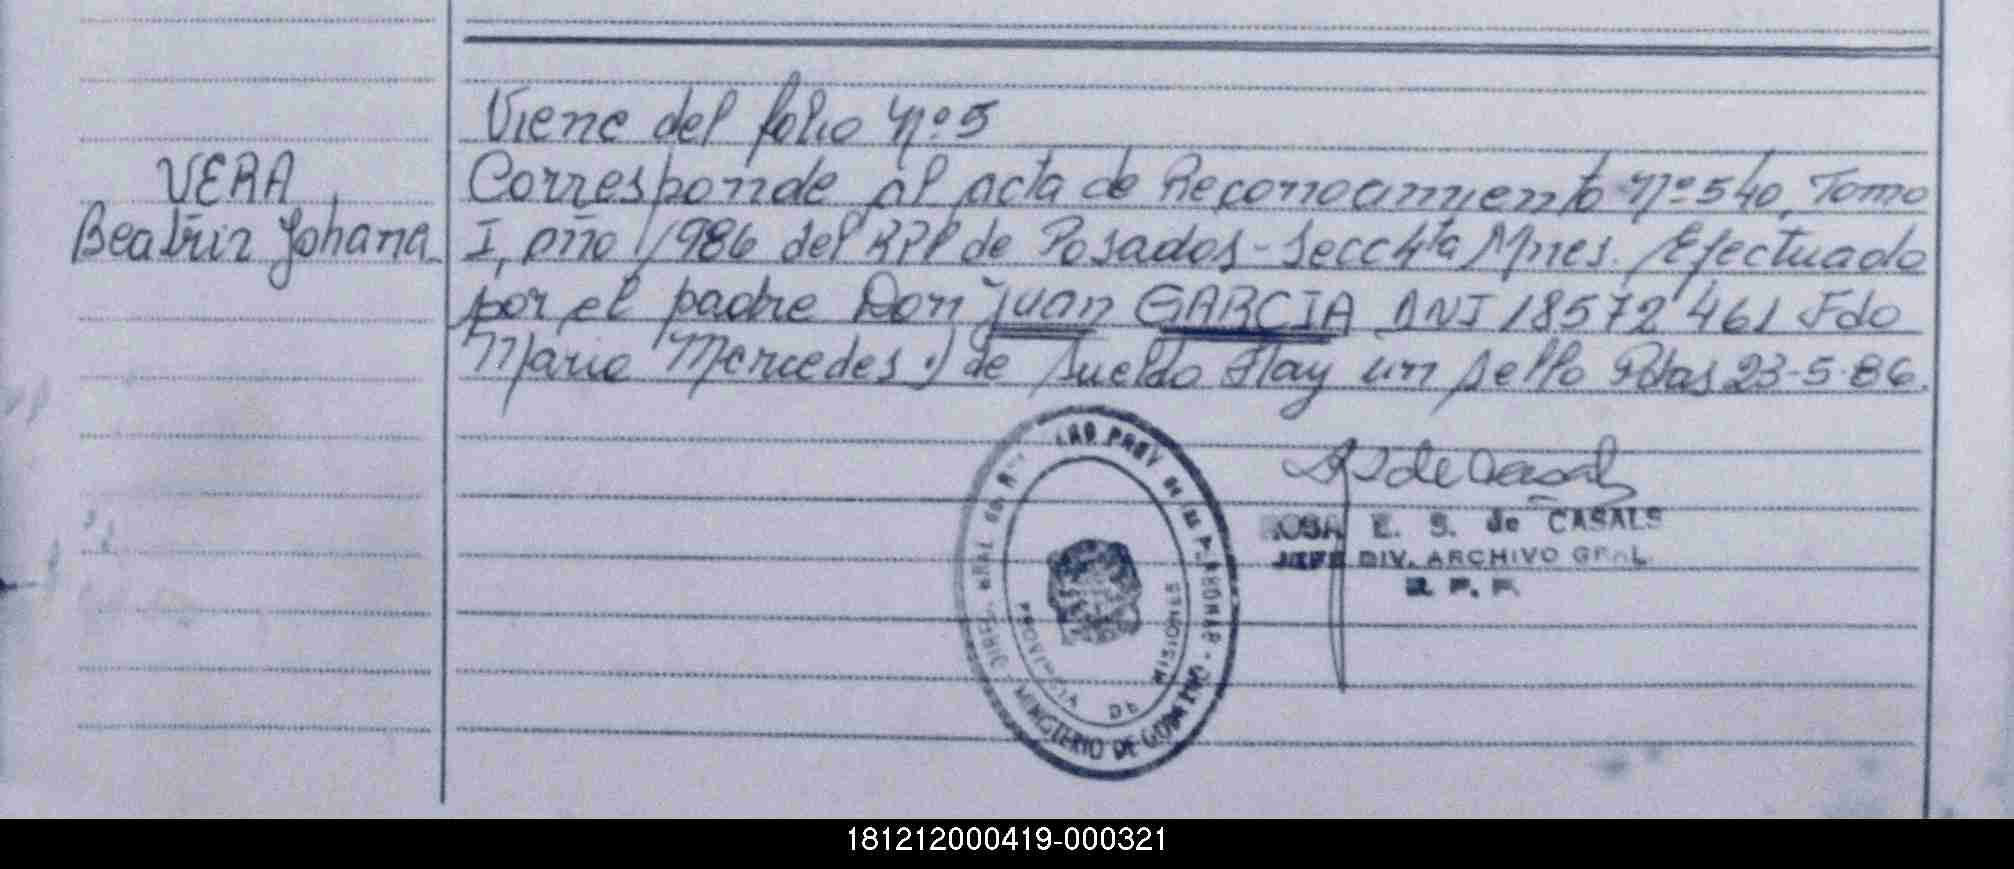 Viene del folio Nº 5
VERA
Beatriz Johana
Corresponde al acta de Reconocimiento Nº 540, Tomo
I, año 1986 del RPP de Posadas - Secc 4ta Mnes. Efectuado
por el padre Don Juan GARCIA DNI 18572461 Fdo
Mercedes de Sueldo Hay un sello Pdas 23-5-86.
ROSA E. S. de CASALS
JEFE DIV. ARCHIVO GRAL.
R. P. P.
PROV. de las PERSONAS - MINISTERIO DE GOBIERNO
PROVINCIA DE MISIONES
181212000419-000321